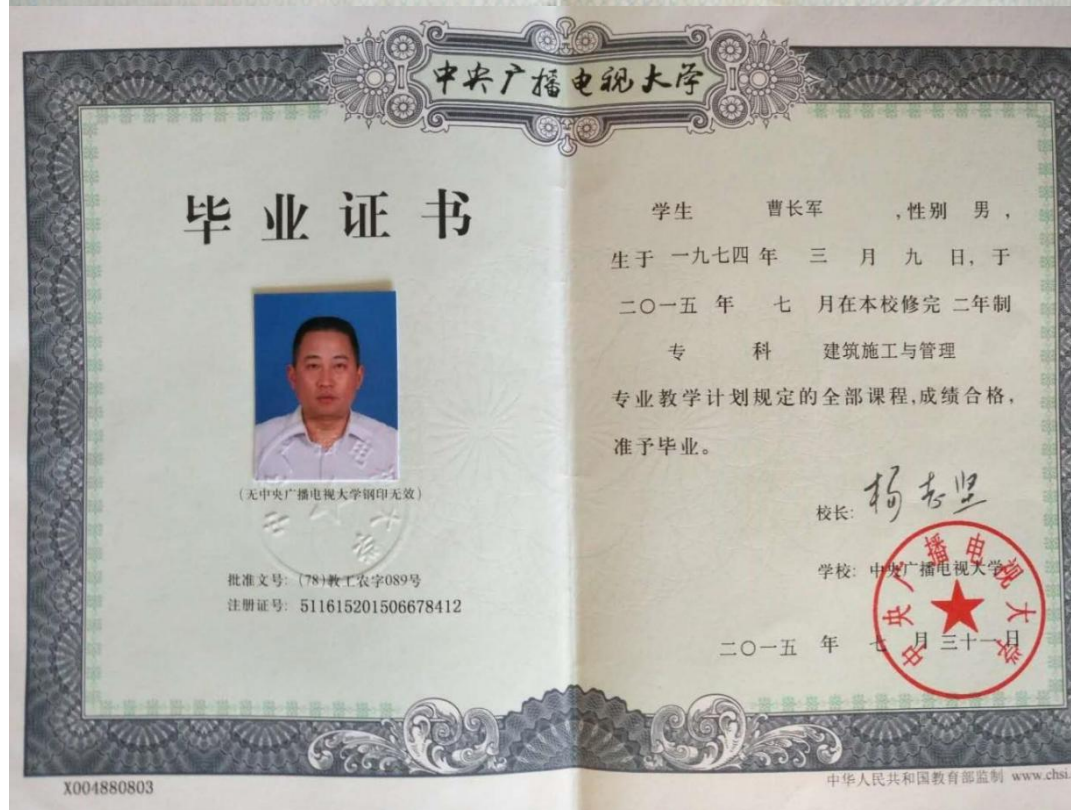 中央广播电视大学
毕业证书
(无中央广播电视大学钢印无效)
批准文号: (78)教工农字089号
注册证号: 511615201506678412
X004880803
学生 曹长军 ,性别 男 ,
生于 一九七四 年 三 月 九 日, 于
二〇一五 年 七 月在本校修完 二年制
专 科 建筑施工与管理
专业教学计划规定的全部课程,成绩合格,
准予毕业。
校长: 杨志坚
学校: 中央广播电视大学
二〇一五 年 七 月 三十一日
中央广播电视大学
中华人民共和国教育部监制 www.chsi.